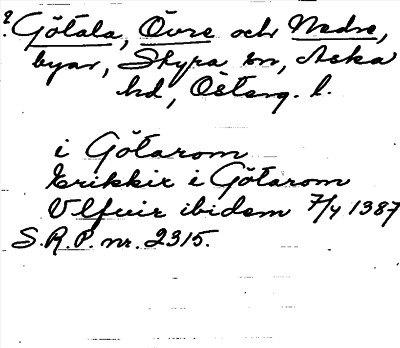 ? Götala, Övre och Nedre,
byar, Styra sn, Aska
hd, Österg. l.
i Götarom
Erikkir i Götarom
Ulfuir ibidem 7/4 1387
S.R.P. nr. 2315.